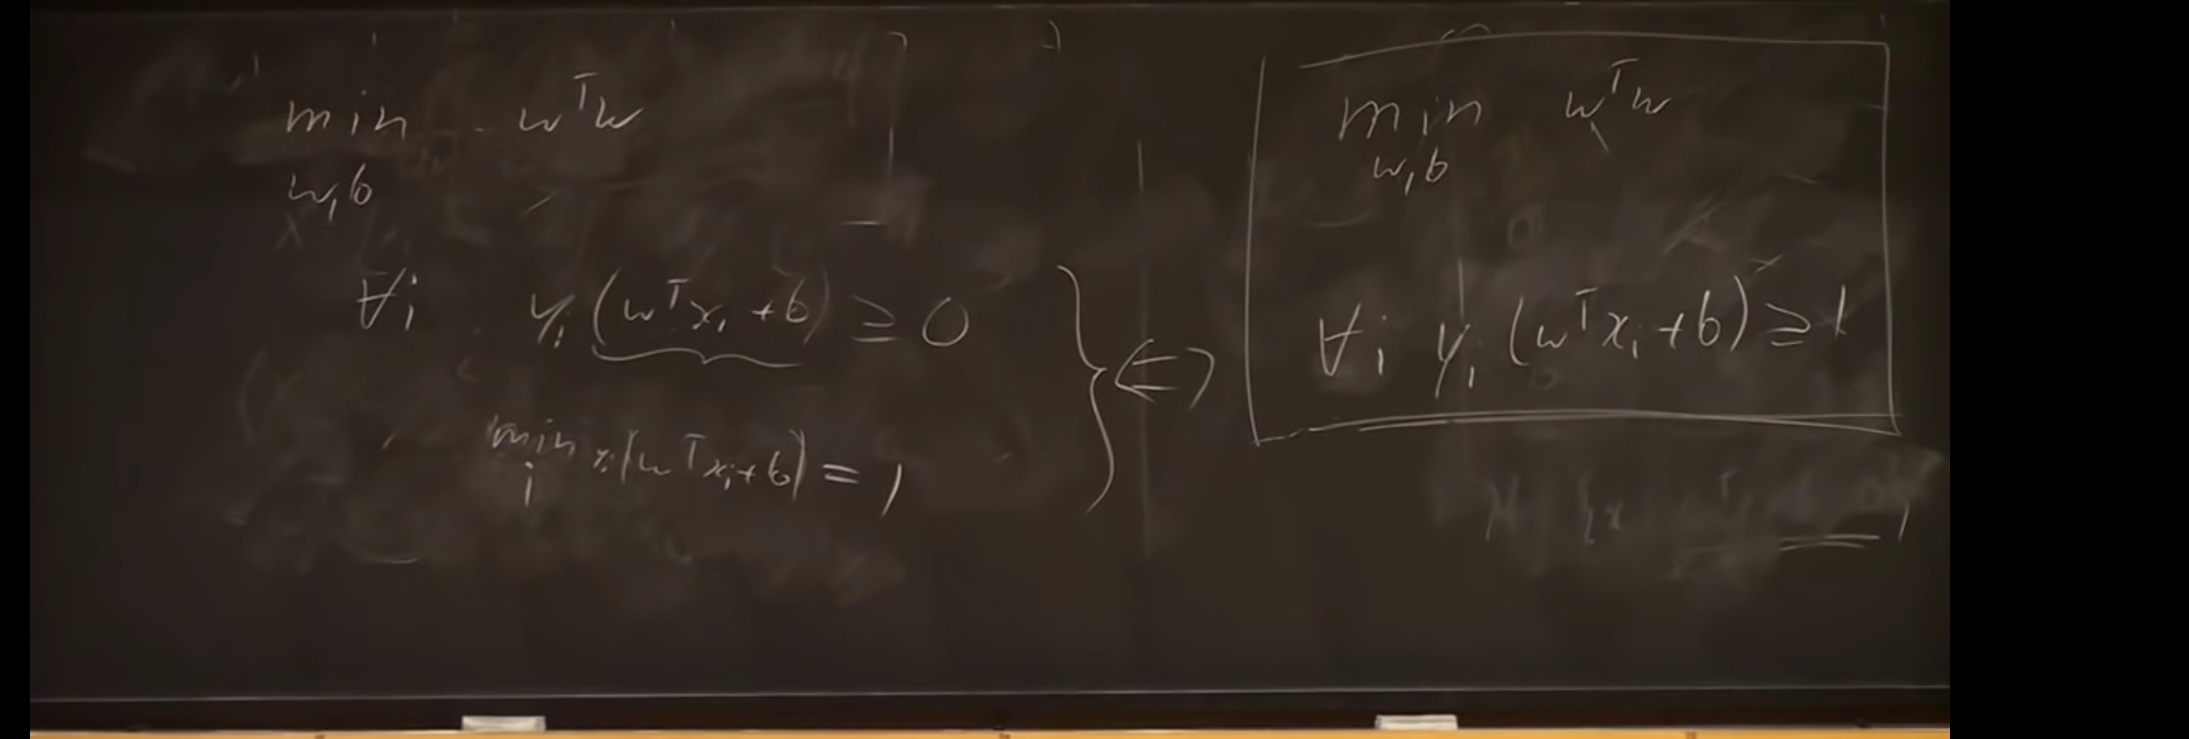 min wᵀw
w,b
∀i yᵢ(wᵀxᵢ+b) ≥ 0
min yᵢ(wᵀxᵢ+b) = 1
i
⇔
min wᵀw
w,b
∀i yᵢ(wᵀxᵢ+b) ≥ 1